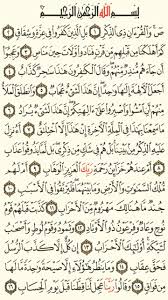 بِسْمِ اللَّهِ الرَّحْمَٰنِ الرَّحِيمِ
صٓ وَالْقُرْآنِ ذِي الذِّكْرِ ١ بَلِ الَّذِينَ كَفَرُوا فِي عِزَّةٍ وَشِقَاقٍ ٢
كَمْ أَهْلَكْنَا مِن قَبْلِهِم مِّن قَرْنٍ فَنَادَوا وَّلَاتَ حِينَ مَنَاصٍ ٣ وَعَجِبُوا
أَن جَاءَهُم مُّنذِرٌ مِّنْهُمْ وَقَالَ الْكَافِرُونَ هَٰذَا سَاحِرٌ كَذَّابٌ ٤
أَجَعَلَ الْآلِهَةَ إِلَٰهًا وَاحِدًا إِنَّ هَٰذَا لَشَيْءٌ عُجَابٌ ٥ وَانطَلَقَ الْمَلَأُ
مِنْهُمْ أَنِ امْشُوا وَاصْبِرُوا عَلَىٰ آلِهَتِكُمْ إِنَّ هَٰذَا لَشَيْءٌ يُرَادُ ٦
مَا سَمِعْنَا بِهَٰذَا فِي الْمِلَّةِ الْآخِرَةِ إِنْ هَٰذَا إِلَّا اخْتِلَاقٌ ٧ أَءُنزِلَ
عَلَيْهِ الذِّكْرُ مِن بَيْنِنَا بَلْ هُمْ فِي شَكٍّ مِّن ذِكْرِي بَل لَّمَّا يَذُوقُوا عَذَابِ ٨
أَمْ عِندَهُمْ خَزَائِنُ رَحْمَةِ رَبِّكَ الْعَزِيزِ الْوَهَّابِ ٩ أَمْ لَهُم
مُّلْكُ السَّمَاوَاتِ وَالْأَرْضِ وَمَا بَيْنَهُمَا فَلْيَرْتَقُوا فِي الْأَسْبَابِ ١٠
جُندٌ مَّا هُنَالِكَ مَهْزُومٌ مِّنَ الْأَحْزَابِ ١١ كَذَّبَتْ قَبْلَهُمْ قَوْمُ
نُوحٍ وَعَادٌ وَفِرْعَوْنُ ذُو الْأَوْتَادِ ١٢ وَثَمُودُ وَقَوْمُ لُوطٍ وَأَصْحَابُ
لْئَيْكَةِ أُولَٰئِكَ الْأَحْزَابُ ١٣ إِن كُلٌّ إِلَّا كَذَّبَ الرُّسُلَ
فَحَقَّ عِقَابِ ١٤ وَمَا يَنظُرُ هَٰؤُلَاءِ إِلَّا صَيْحَةً وَاحِدَةً مَّا لَهَا
مِن فَوَاقٍ ١٥ وَقَالُوا رَبَّنَا عَجِّل لَّنَا قِطَّنَا قَبْلَ يَوْمِ الْحِسَابِ ١٦